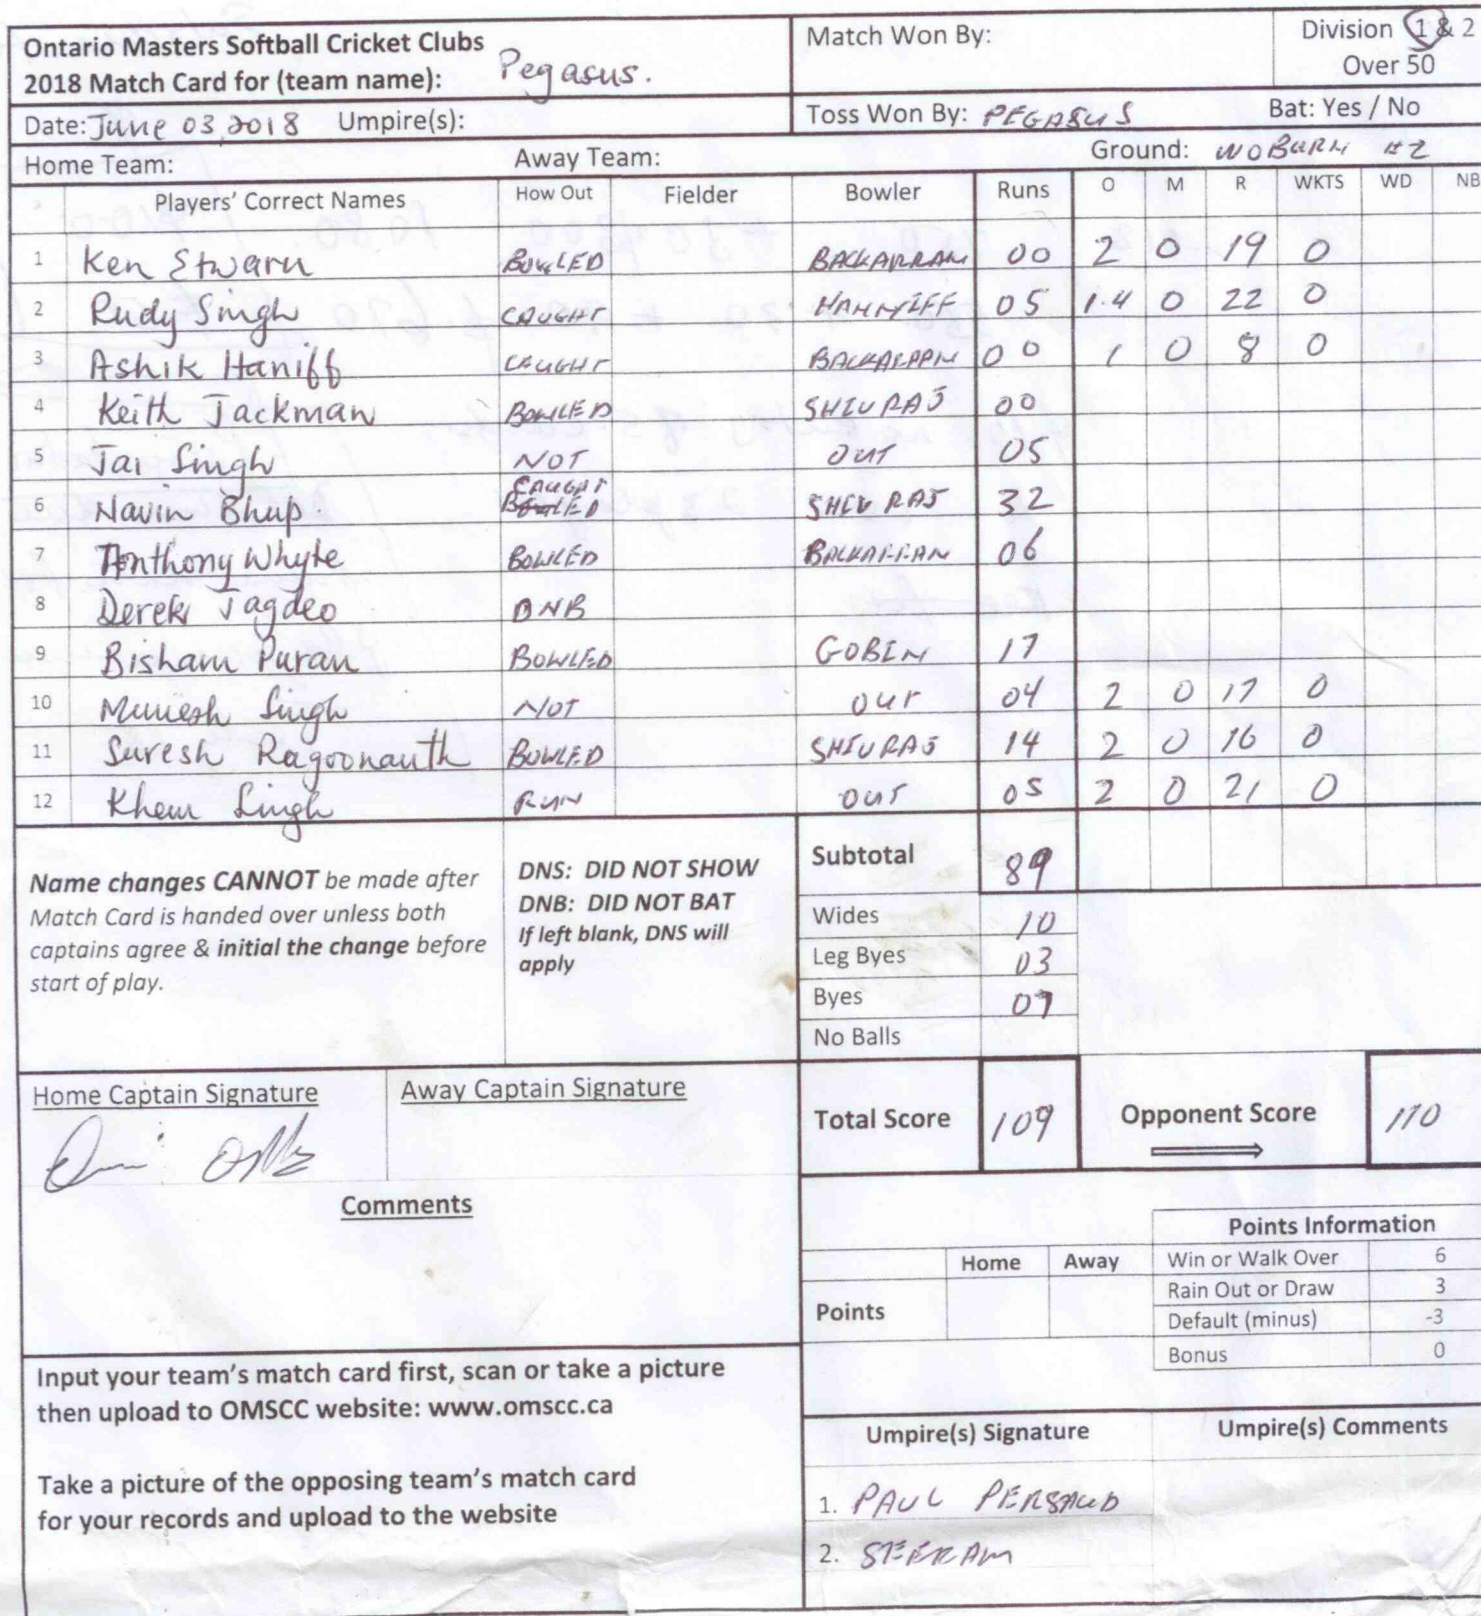 Ontario Masters Softball Cricket Clubs
2018 Match Card for (team name): Pegasus.
Match Won By:
Division 1 & 2
Over 50
Date: June 03, 2018 Umpire(s):
Toss Won By: PEGASUS Bat: Yes / No
Home Team: Away Team: Ground: WOBURN #2
Players' Correct Names How Out Fielder Bowler Runs O M R WKTS WD NB
1 Ken Etwaru BOWLED BACKARRAN 00 2 0 19 0
2 Rudy Singh CAUGHT HANNIFF 05 1.4 0 22 0
3 Ashik Haniff CAUGHT BACKARRAN 00 1 0 8 0
4 Keith Jackman BOWLED SHIVRAJ 00
5 Jai Singh NOT OUT 05
6 Navin Bhup. CAUGHT BOWLED SHIVRAJ 32
7 Anthony Whyte BOWLED BACKARRAN 06
8 Derek Jagdeo DNB
9 Bisham Puran BOWLED GOBIN 17
10 Munesh Singh NOT OUT 04 2 0 17 0
11 Suresh Ragoonauth BOWLED SHIVRAJ 14 2 0 16 0
12 Khem Singh RUN OUT 05 2 0 21 0
Name changes CANNOT be made after
Match Card is handed over unless both
captains agree & initial the change before
start of play.
DNS: DID NOT SHOW
DNB: DID NOT BAT
If left blank, DNS will
apply
Subtotal 89
Wides 10
Leg Byes 03
Byes 07
No Balls
Home Captain Signature Away Captain Signature
Total Score 109 Opponent Score 110
Comments
Points Information
Home Away Win or Walk Over 6
Rain Out or Draw 3
Points
Default (minus) -3
Bonus 0
Input your team's match card first, scan or take a picture
then upload to OMSCC website: www.omscc.ca
Take a picture of the opposing team's match card
for your records and upload to the website
Umpire(s) Signature Umpire(s) Comments
1. PAUL PERSAUD
2. SEERAM